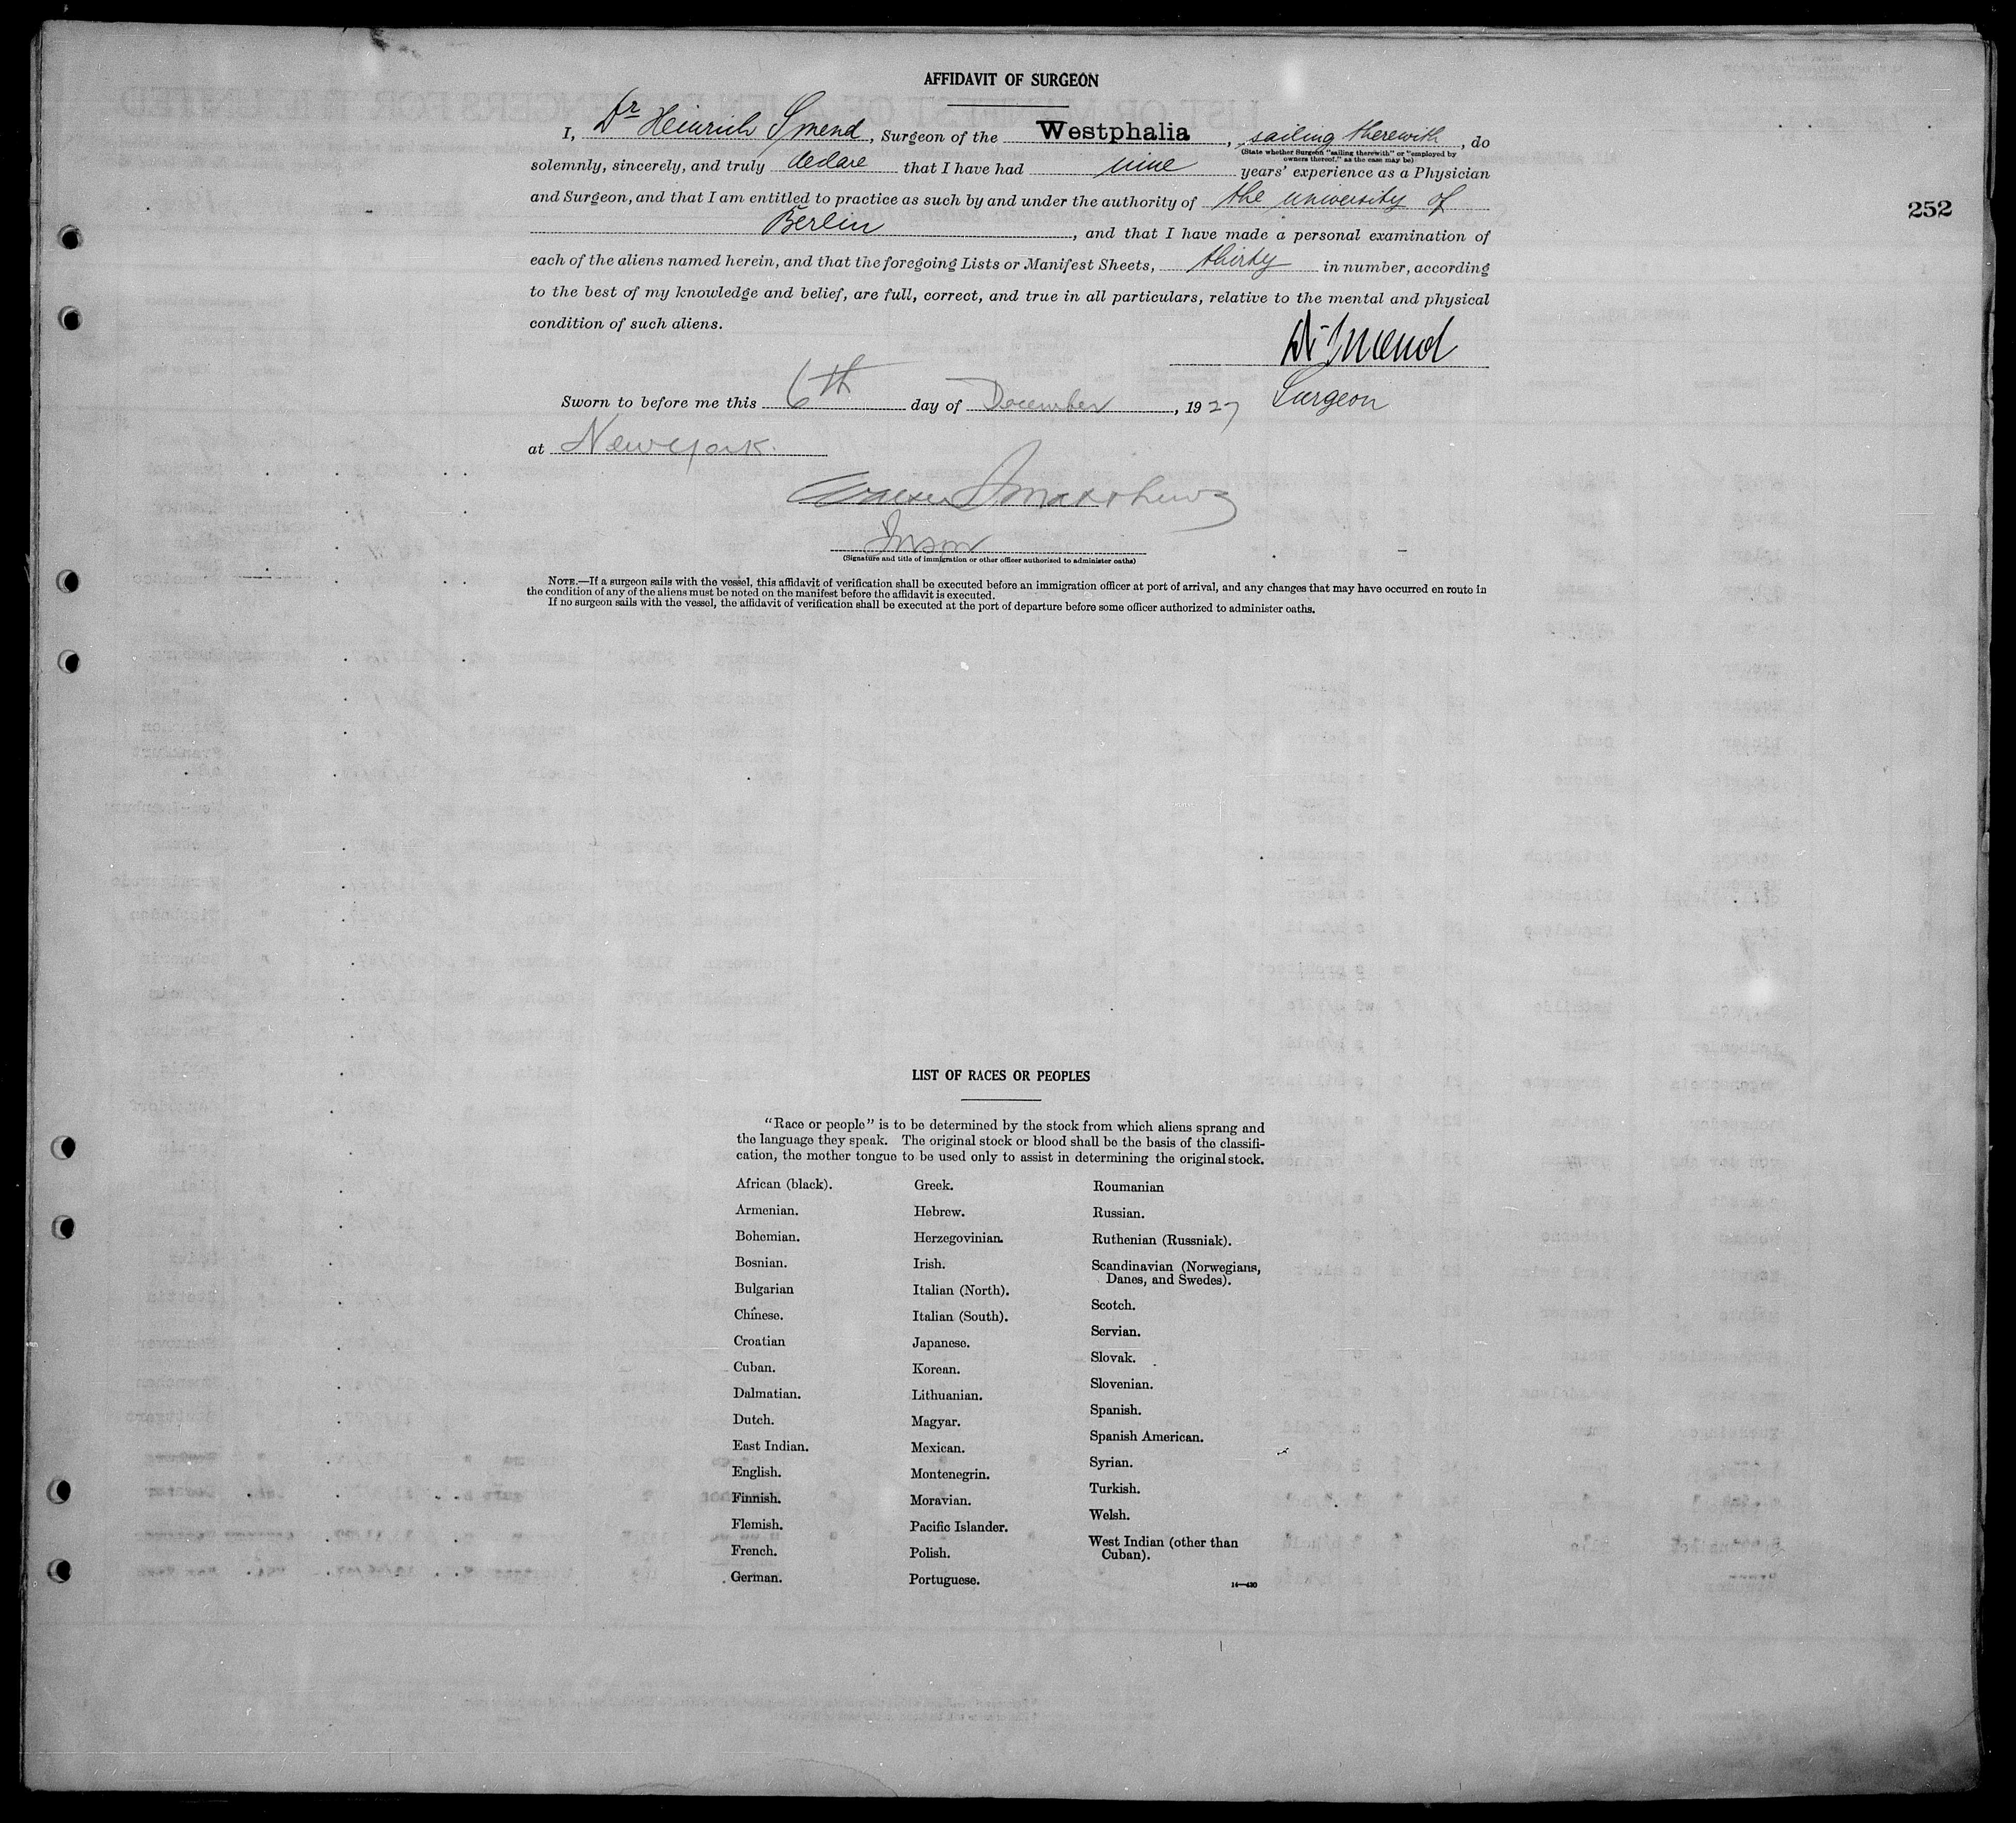 AFFIDAVIT OF SURGEON
I, Dr Heinrich Smend, Surgeon of the Westphalia, sailing therewith, do
(State whether Surgeon "sailing therewith" or "employed by
owners thereof," as the case may be)
solemnly, sincerely, and truly declare that I have had nine years' experience as a Physician
and Surgeon, and that I am entitled to practice as such by and under the authority of the university of
252
Berlin, and that I have made a personal examination of
each of the aliens named herein, and that the foregoing Lists or Manifest Sheets, thirty in number, according
to the best of my knowledge and belief, are full, correct, and true in all particulars, relative to the mental and physical
condition of such aliens.
Dr Smend
Surgeon
Sworn to before me this 6th day of December, 1927
at New York.
Matthews
(Signature and title of immigration or other officer authorized to administer oaths)
NOTE.—If a surgeon sails with the vessel, this affidavit of verification shall be executed before an immigration officer at port of arrival, and any changes that may have occurred en route in
the condition of any of the aliens must be noted on the manifest before the affidavit is executed.
If no surgeon sails with the vessel, the affidavit of verification shall be executed at the port of departure before some officer authorized to administer oaths.
LIST OF RACES OR PEOPLES
"Race or people" is to be determined by the stock from which aliens sprang and
the language they speak. The original stock or blood shall be the basis of the classifi-
cation, the mother tongue to be used only to assist in determining the original stock.
African (black).
Armenian.
Bohemian.
Bosnian.
Bulgarian
Chinese.
Croatian
Cuban.
Dalmatian.
Dutch.
East Indian.
English.
Finnish.
Flemish.
French.
German.
Greek.
Hebrew.
Herzegovinian.
Irish.
Italian (North).
Italian (South).
Japanese.
Korean.
Lithuanian.
Magyar.
Mexican.
Montenegrin.
Moravian.
Pacific Islander.
Polish.
Portuguese.
Roumanian
Russian.
Ruthenian (Russniak).
Scandinavian (Norwegians,
Danes, and Swedes).
Scotch.
Servian.
Slovak.
Slovenian.
Spanish.
Spanish American.
Syrian.
Turkish.
Welsh.
West Indian (other than
Cuban).
14—430